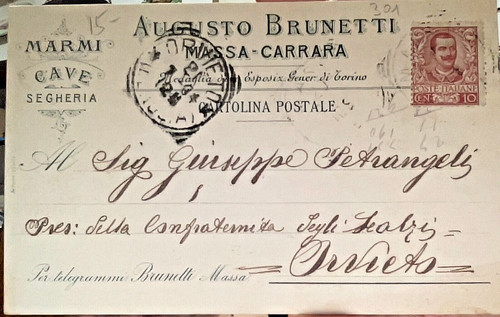 301
15-
AUGUSTO BRUNETTI
MASSA-CARRARA
MARMI
CAVE
SEGHERIA
Medaglia oro Esposiz. Gener. di Torino
CARTOLINA POSTALE
ORVIETO
POSTE·ITALIANE
CEN. 10
Al Sig Giuseppe Petrangeli
Pres: della Confraternita degli Scalzi
Orvieto
Per telegrammi Brunetti Massa